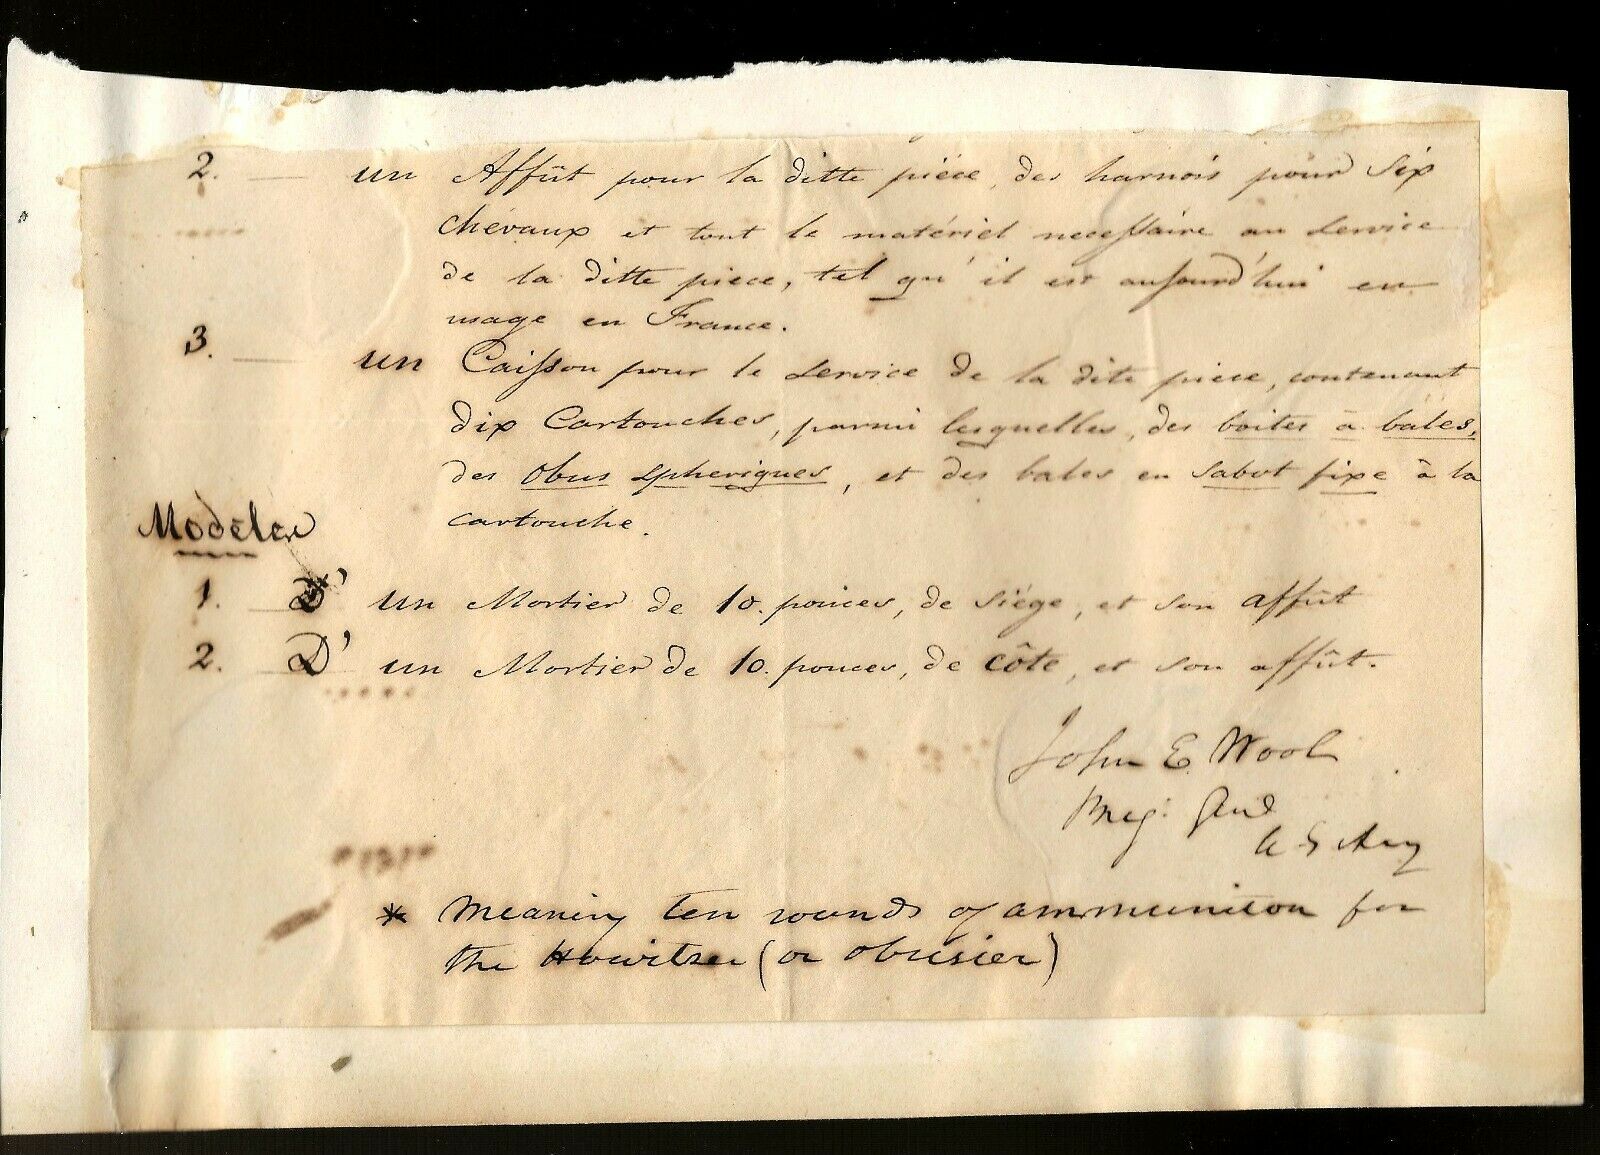 2. un Affût pour la ditte piéce, des harnois pour six
chévaux et tout le matériel necessaire au service
de la ditte piece, tel qu'il est aujourd'hui en
usage en France.
3. un Caisson pour le service de la dite piece, contenant
dix Cartouches, parmi lesquelles, des boites à bâles,
des Obus spheriques, et des bales en sabot fixe à la
cartouche.
Modèles
1. D' un Mortier de 10. pouces, de siége, et son affût
2. D' un Mortier de 10. pouces, de côte, et son affût.
John E. Wool
Brig: Genl
U S Army
* Meaning ten rounds of ammunition for
the Howitzer (or Obusier)